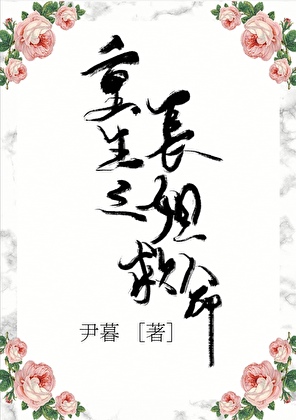 重生之
長姐
救命
尹暮 [著]